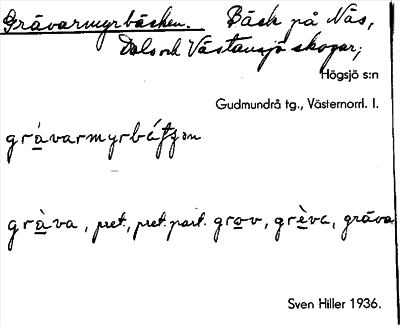 Grävarmyrbäcken. Bäck på Näs,
Dals och Västansjö skogar;
Högsjö s:n
Gudmundrå tg., Västernorrl. l.
gràvarmyrbáʃʒən
gràva, pret., pret. part. grov, grèvc, gräva
Sven Hiller 1936.